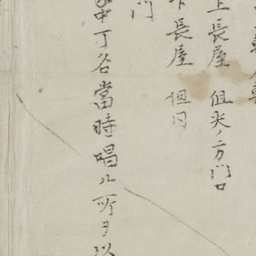 上長屋 但尖ノ方門口
下長屋 但同
門
家中丁谷當時唱ル所ヲ以